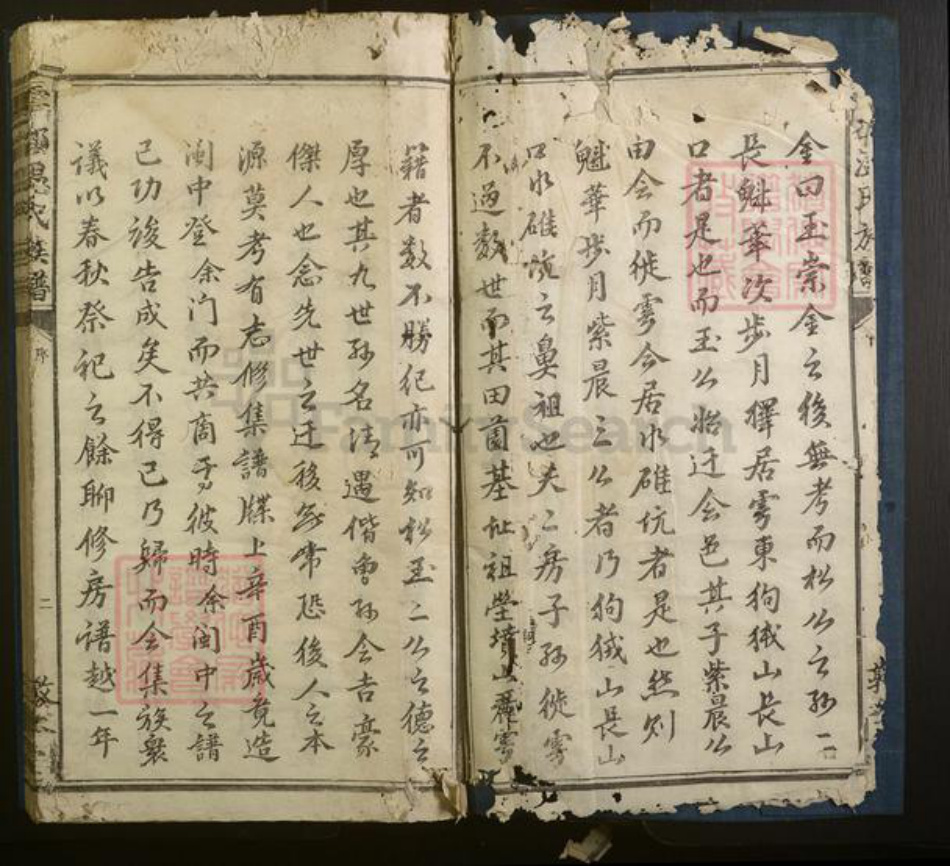 金曰玉崇金公後無考而松公之孫一曰
長魁華次步月擇居雩東狗狨山長山
口者是也而玉公胎迁会邑其子紫晨公
由会而徙雩今居水碓坑者是也然则
魁華步月紫晨三公者乃狗狨山長山
口水碓坑之鼻祖也夫二房子孫徙雩
不過数世而其田園基址祖塋墳山麻雩
籍者数不勝纪亦可知松玉二公之德之
厚也其九世孫名清遇偕魯孫会吉豪
傑人也念先世之迁移無常恐後人之本
源莫考有志修集譜牒上辛酉歲竟造
闽中登余门而共商于彼時余闽中之譜
已功竣告成矣不得已乃歸而会集族衆
議以春秋祭祀之餘聊修房谱越一年
氏族譜
序
二
FamilySearch